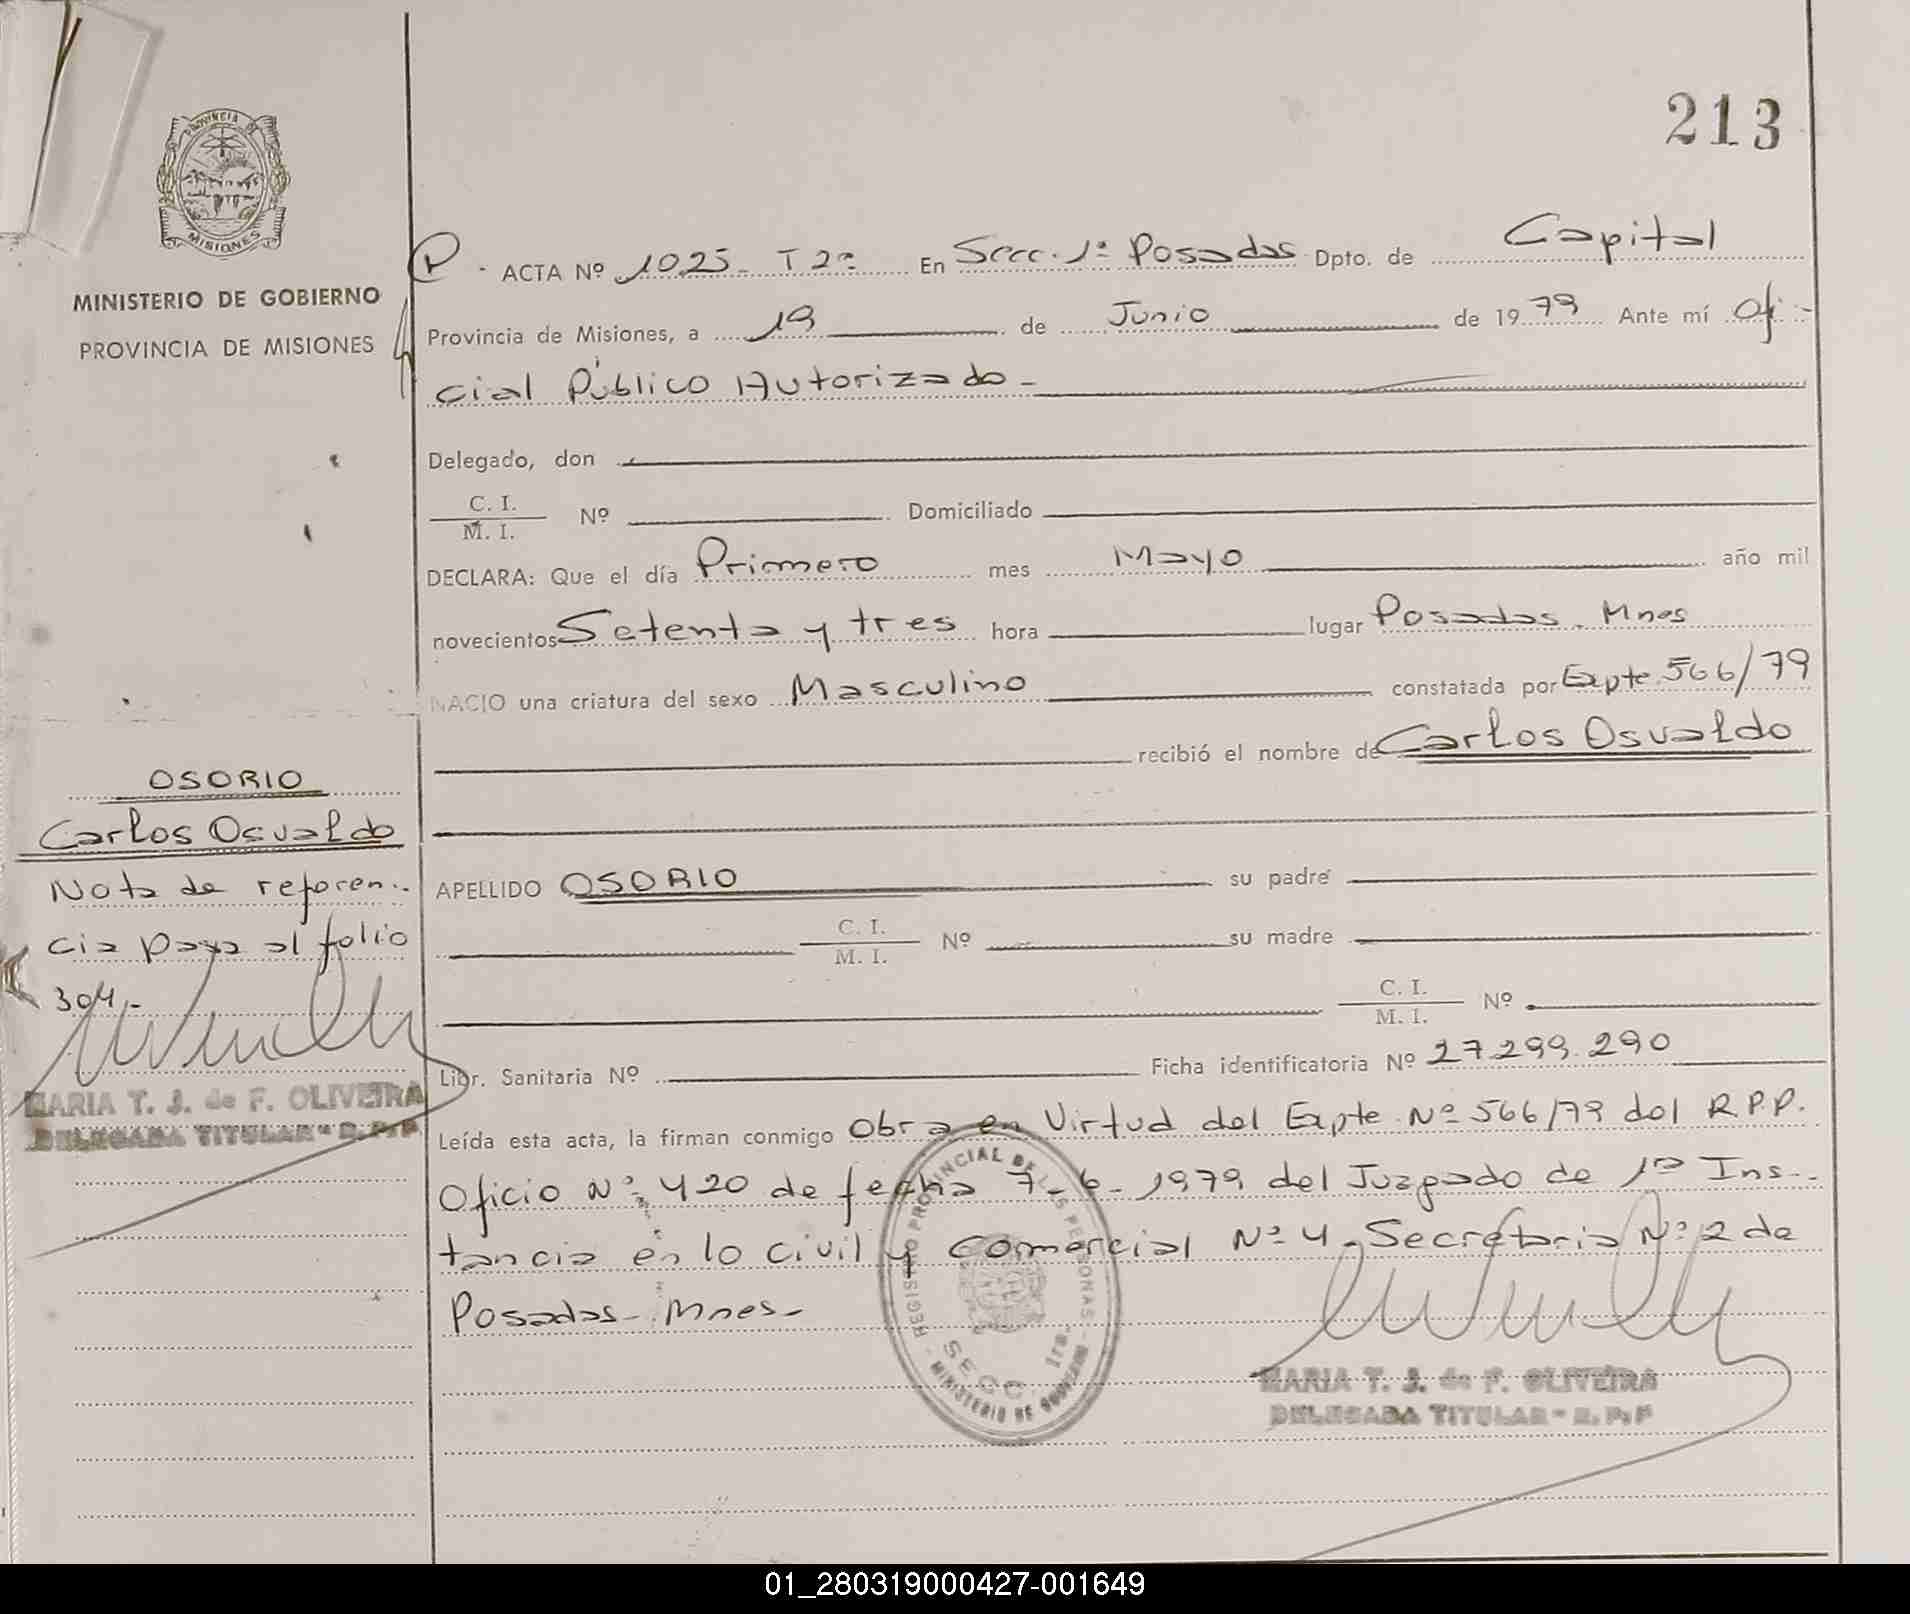 213
PROVINCIA DE
MISIONES
MINISTERIO DE GOBIERNO
PROVINCIA DE MISIONES
P. ACTA Nº 1025 - T 2º En Secc. 1ª Posadas Dpto. de Capital
Provincia de Misiones, a 19 de Junio de 1979 Ante mí Ofi-
cial Público Autorizado -
Delegado, don
C. I.
M. I. Nº Domiciliado
DECLARA: Que el día Primero mes Mayo año mil
novecientos Setenta y tres hora lugar Posadas. Mnes
NACIO una criatura del sexo Masculino constatada por Expte 566/79
recibió el nombre de Carlos Osvaldo
APELLIDO OSORIO su padre
C. I.
M. I. Nº su madre
C. I.
M. I. Nº
Libr. Sanitaria Nº Ficha identificatoria Nº 27.299.290
Leída esta acta, la firman conmigo Obra en Virtud del Expte. Nº 566/79 del R.P.P.
Oficio Nº 420 de fecha 7-6-1979 del Juzgado de 1ra Ins-
tancia en lo civil y Comercial Nº 4. Secretaria Nº 2 de
Posadas - Mnes -
REGISTRO PROVINCIAL DE LAS PERSONAS
SECC. 1ra.
MINISTERIO DE GOBIERNO
MARIA T. J. de F. OLIVEIRA
DELEGADA TITULAR - R. P. P
OSORIO
Carlos Osvaldo
Nota de referen..
cia pasa al folio
304.-
MARIA T. J. de F. OLIVEIRA
DELEGADA TITULAR - R. P. P
01_280319000427-001649